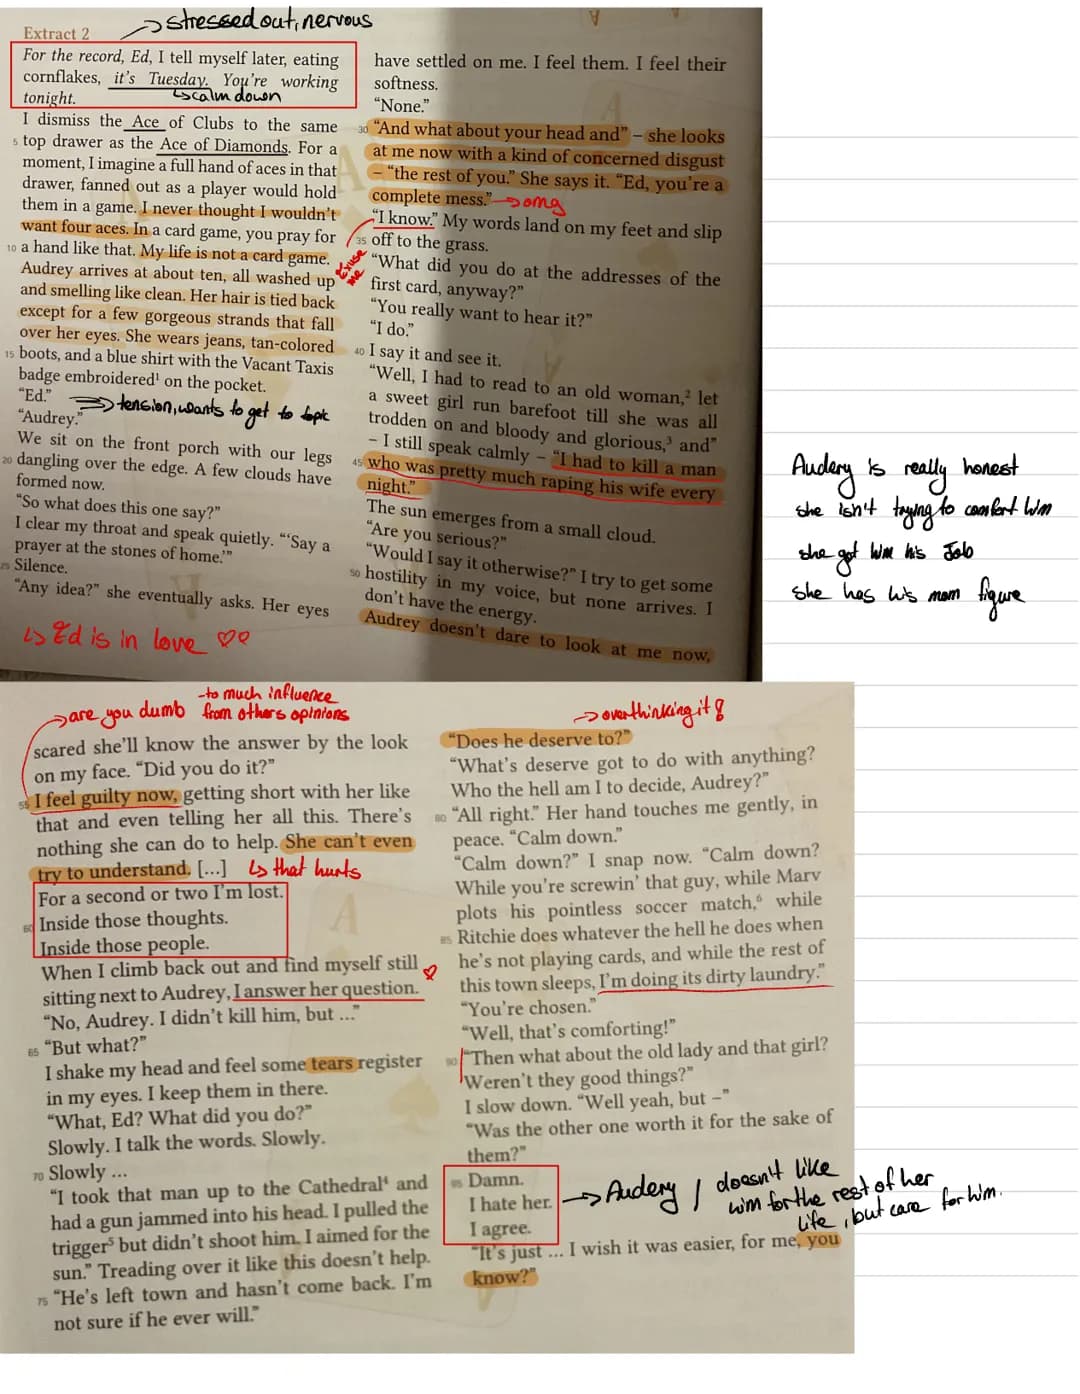 →stressed out, nervous
Extract 2
For the record, Ed, I tell myself later, eating
cornflakes, it's Tuesday. You're working
tonight.
↳calm down
I dismiss the Ace of Clubs to the same
5 top drawer as the Ace of Diamonds. For a
moment, I imagine a full hand of aces in that
drawer, fanned out as a player would hold
them in a game. I never thought I wouldn't
want four aces. In a card game, you pray for
10 a hand like that. My life is not a card game.
Audrey arrives at about ten, all washed up
and smelling like clean. Her hair is tied back
except for a few gorgeous strands that fall
over her eyes. She wears jeans, tan-colored
15 boots, and a blue shirt with the Vacant Taxis
badge embroidered¹ on the pocket.
"Ed."
→ tension, wants to get to topic
"Audrey."
We sit on the front porch with our legs
20 dangling over the edge. A few clouds have
formed now.
"So what does this one say?"
I clear my throat and speak quietly. "'Say a
prayer at the stones of home.'"
25 Silence.
"Any idea?" she eventually asks. Her eyes
↳ Ed is in love ♡♡
have settled on me. I feel them. I feel their
softness.
"None."
30 "And what about your head and" – she looks
at me now with a kind of concerned disgust
– "the rest of you." She says it. "Ed, you're a
complete mess." →omg
"I know." My words land on my feet and slip
35 off to the grass.
Excuse me
"What did you do at the addresses of the
first card, anyway?"
"You really want to hear it?"
"I do."
40 I say it and see it.
"Well, I had to read to an old woman,² let
a sweet girl run barefoot till she was all
trodden on and bloody and glorious,³ and"
– I still speak calmly – "I had to kill a man
45 who was pretty much raping his wife every
night."
The sun emerges from a small cloud.
"Are you serious?"
"Would I say it otherwise?" I try to get some
50 hostility in my voice, but none arrives. I
don't have the energy.
Audrey doesn't dare to look at me now,
Audery is really honest
she isn't trying to comfort him
she got him his Job
she has his mom figure
→are you dumb
-to much influence
from others opinions
scared she'll know the answer by the look
on my face. "Did you do it?"
55 I feel guilty now, getting short with her like
that and even telling her all this. There's
nothing she can do to help. She can't even
try to understand. [...] ↳ that hurts
For a second or two I'm lost.
60 Inside those thoughts.
Inside those people.
When I climb back out and find myself still ♡
sitting next to Audrey, I answer her question.
"No, Audrey. I didn't kill him, but ..."
65 "But what?"
I shake my head and feel some tears register
in my eyes. I keep them in there.
"What, Ed? What did you do?"
Slowly. I talk the words. Slowly.
70 Slowly ...
"I took that man up to the Cathedral⁴ and
had a gun jammed into his head. I pulled the
trigger⁵ but didn't shoot him. I aimed for the
sun." Treading over it like this doesn't help.
75 "He's left town and hasn't come back. I'm
not sure if he ever will."
→overthinking it!
"Does he deserve to?"
"What's deserve got to do with anything?
Who the hell am I to decide, Audrey?"
80 "All right." Her hand touches me gently, in
peace. "Calm down."
"Calm down?" I snap now. "Calm down?
While you're screwin' that guy, while Marv
plots his pointless soccer match,⁶ while
85 Ritchie does whatever the hell he does when
he's not playing cards, and while the rest of
this town sleeps, I'm doing its dirty laundry."
"You're chosen."
"Well, that's comforting!"
90 "Then what about the old lady and that girl?
Weren't they good things?"
I slow down. "Well yeah, but –"
"Was the other one worth it for the sake of
them?"
95 Damn.
I hate her.
I agree.
→Audery / doesn't like
him for the rest of her
life, but care for him.
"It's just ... I wish it was easier, for me, you
know?"